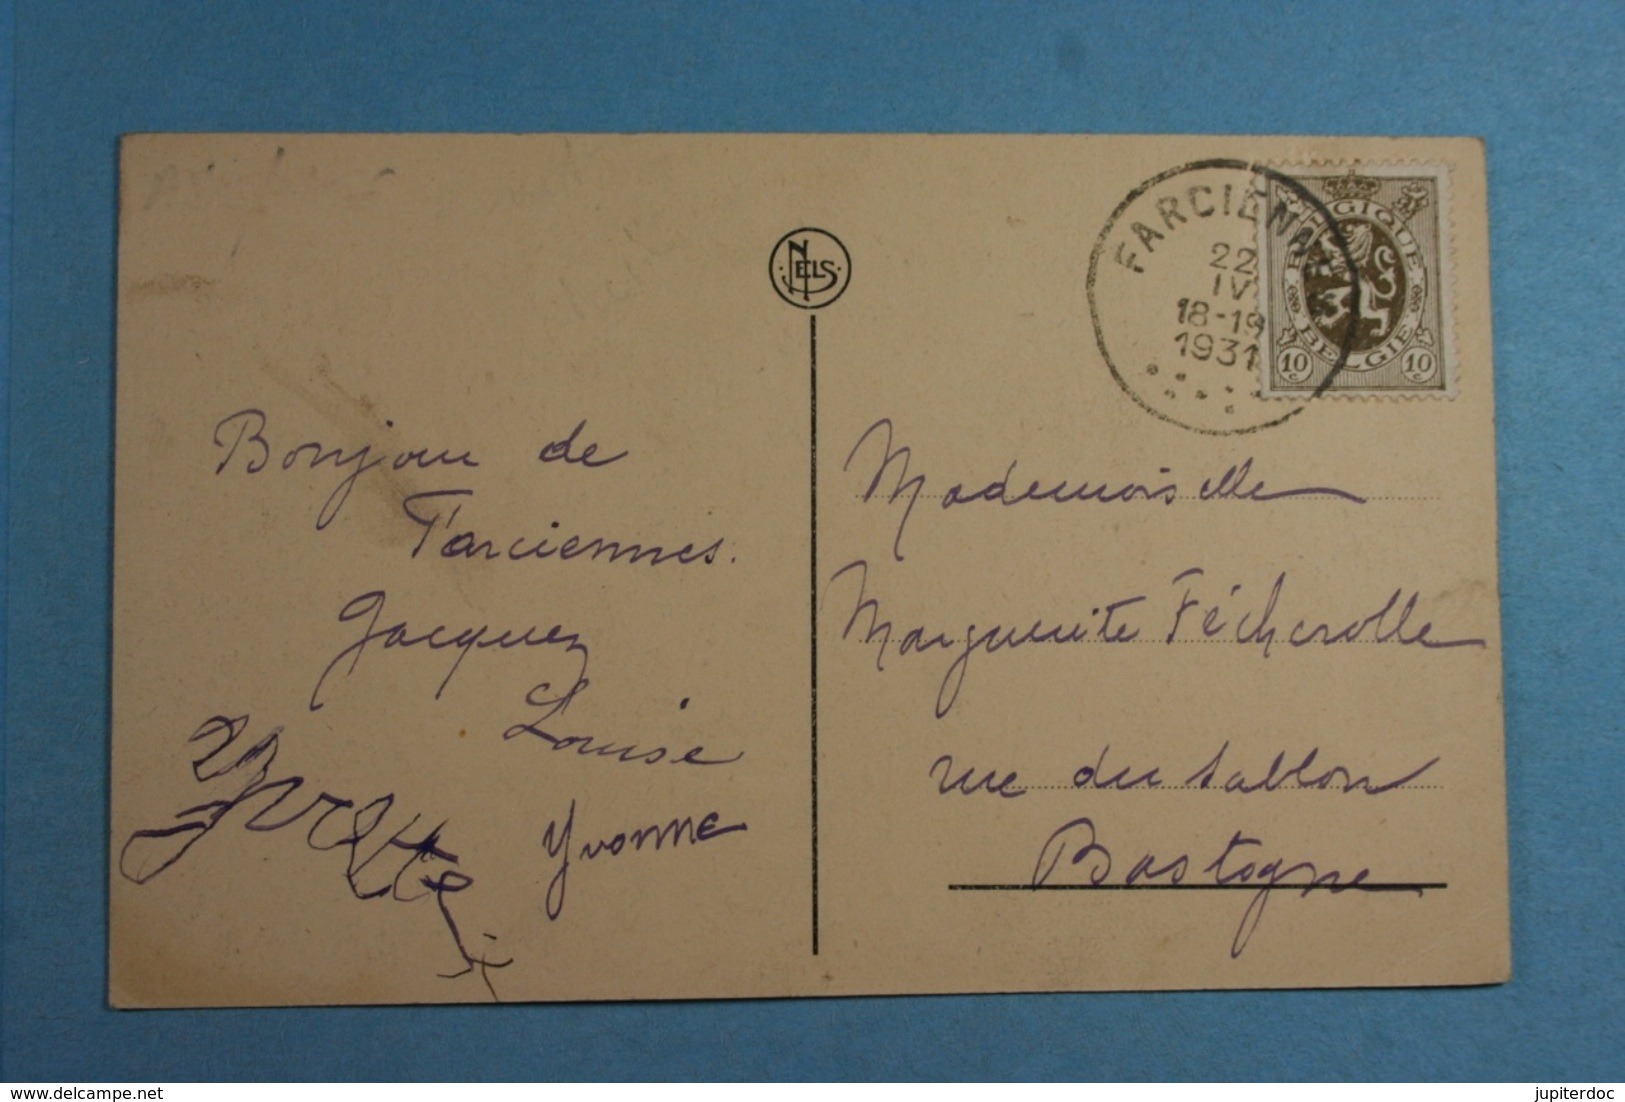 NELS
FARCIENNES
22
IV
18-19
1931
BELGIQUE
BELGIE
10 c
10 c
Bonjour de
Farciennes.
Jacques
Louise
Yvonne
Yvette
Mademoiselle
Marguerite Fécherolle
rue du Sablon
Bastogne
delcampe.net
jupiterdoc